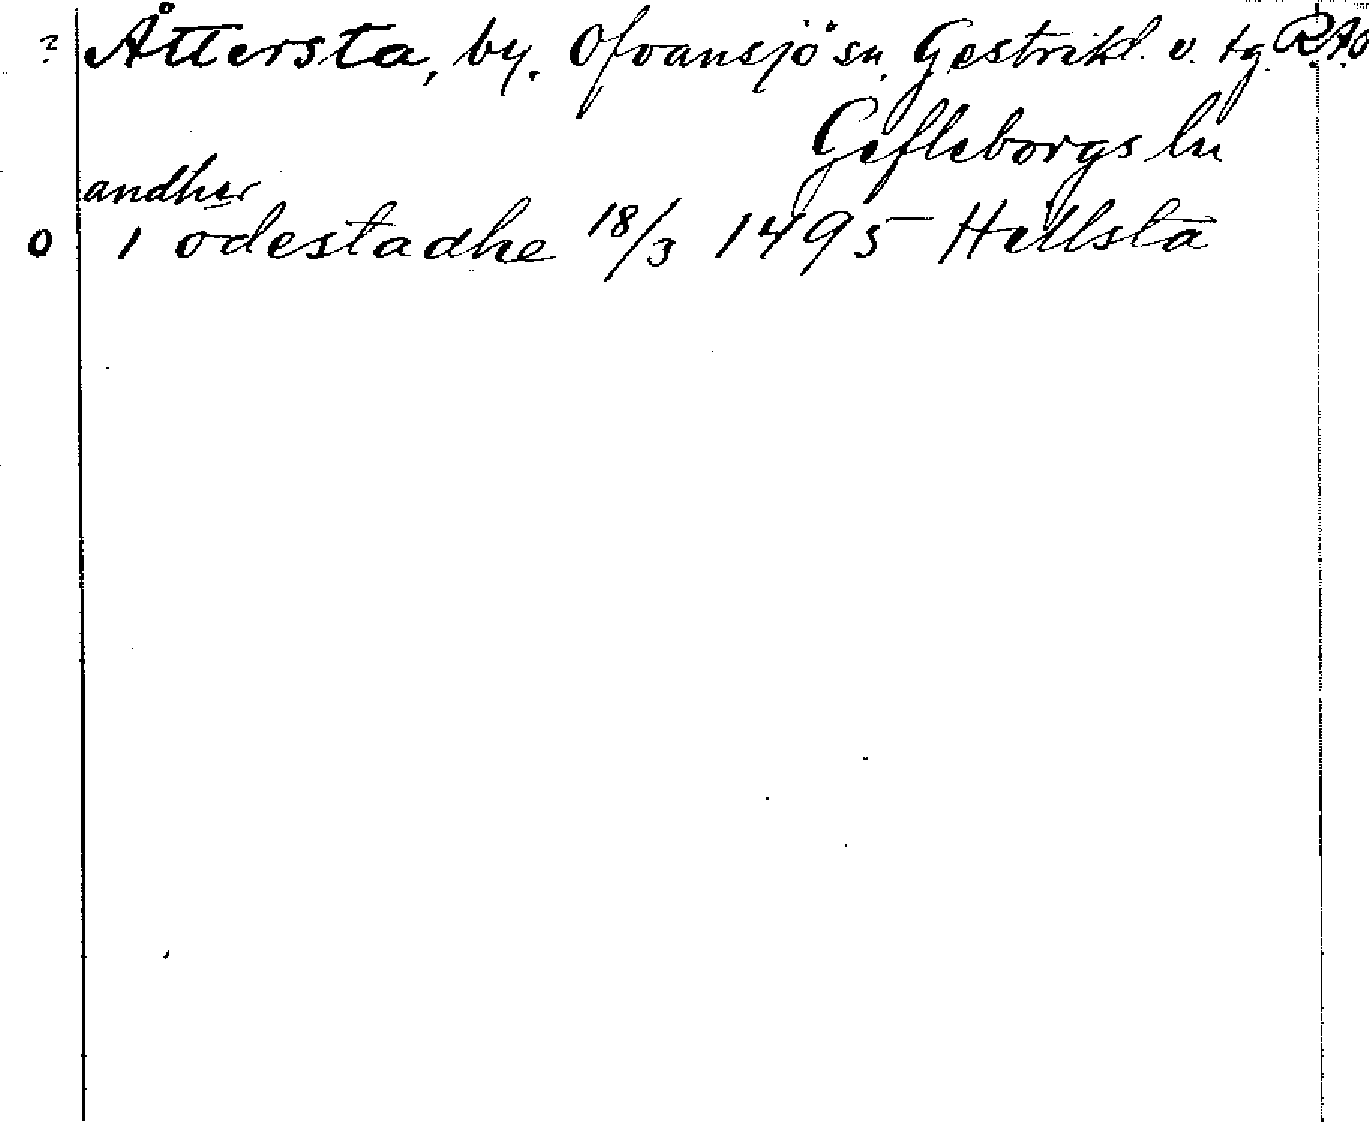 ? Åttersta, by. Ofvansjö sn. Gestrikl. v. tg. R.A.0
Gefleborgs ln
andher
0 1 odestadhe 18/3 1495 Hellsta